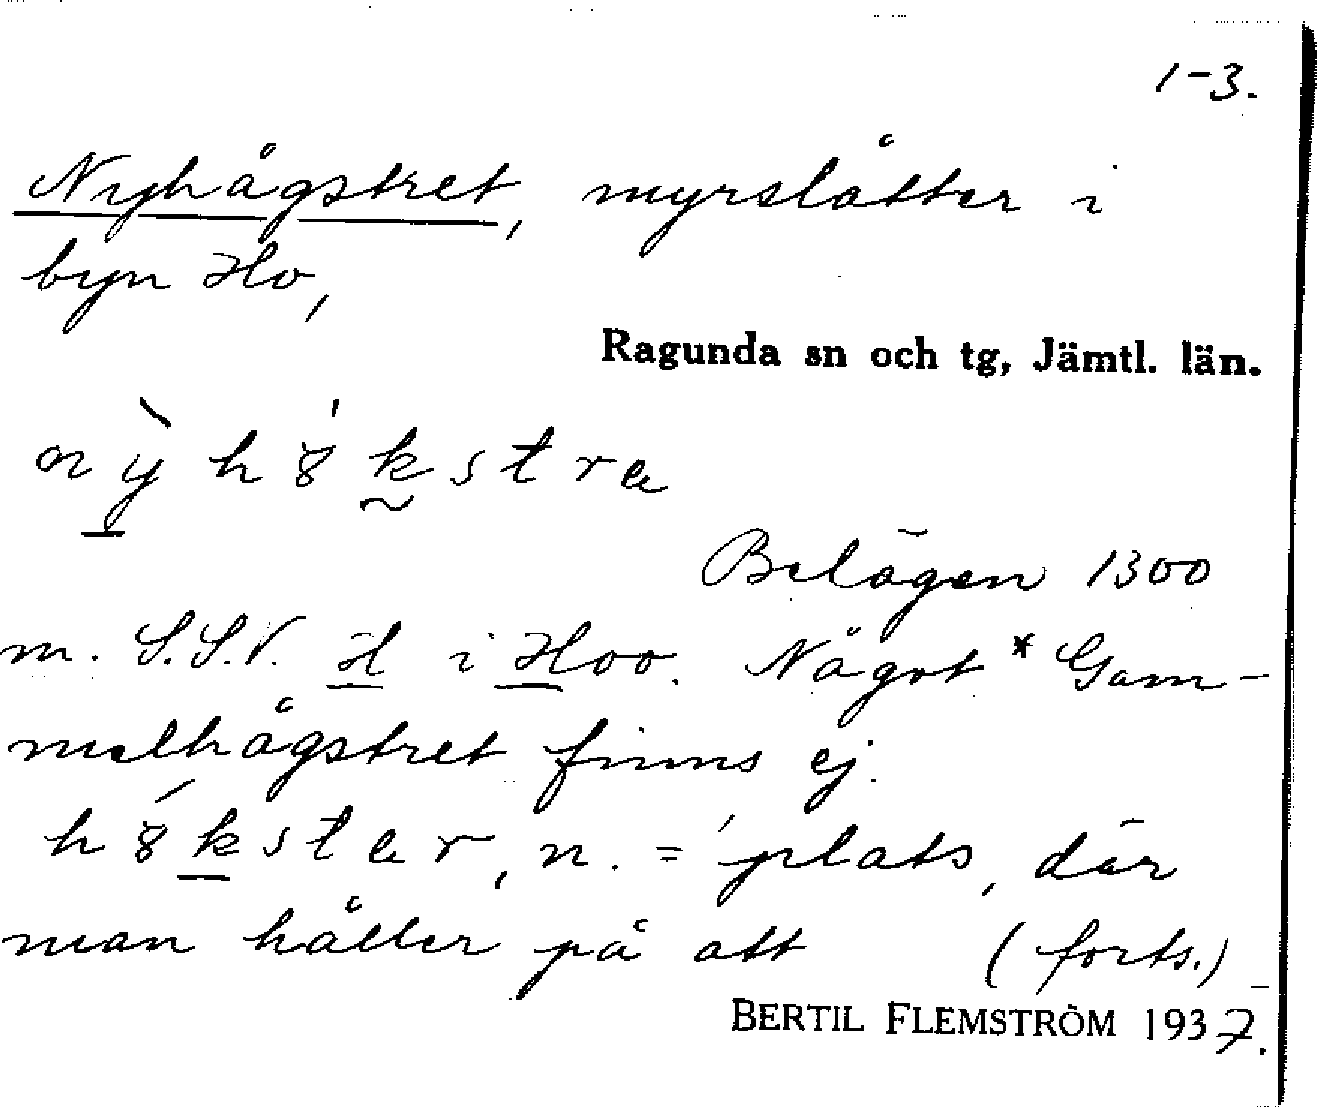 1-3.
Nyhågstret, myrslåtter i
byn Ho,
Ragunda sn och tg, Jämtl. län.
Belägen 1300
m. S.S.V. H i Hoo. Något *Gam-
melhågstret finns ej.
n. = 'plats, där
man håller på att (forts.)
BERTIL FLEMSTRÖM 1937.